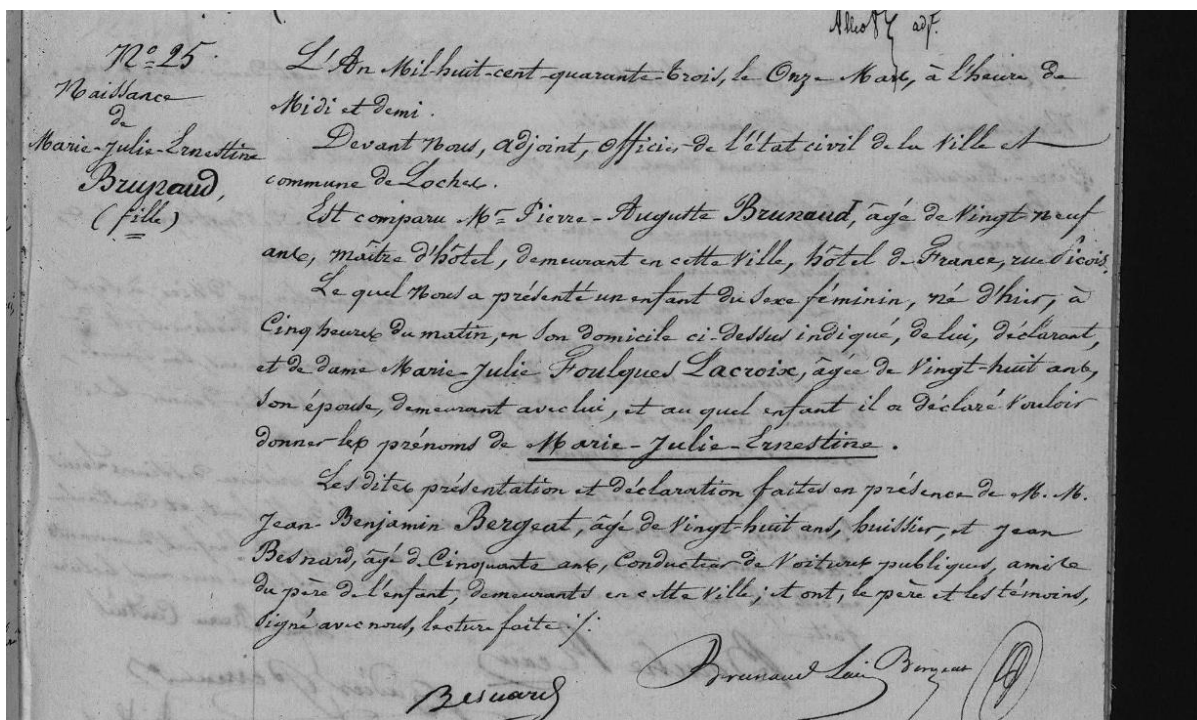 adj.
N.º 25.
Naissance
de
Marie-Julie-Ernestine
Brunaud,
(fille)
L'An Mil-huit-cent-quarante-trois, le Onze Mars, à l'heure de
Midi et demi.
Devant Nous, adjoint, officier de l'état civil de la Ville et
commune de Loches.
Est comparu Mr. Pierre-Auguste Brunaud, âgé de Vingt-neuf
ans, maître d'hôtel, demeurant en cette Ville, hôtel de France, rue Picois.
Le quel Nous a présenté un enfant du sexe féminin, né d'hier, à
Cinq heures du matin, en son domicile ci-dessus indiqué, de lui, déclarant,
et de dame Marie-Julie Foulques Lacroix, âgée de Vingt-huit ans,
son épouse, demeurant avec lui, et au quel enfant il a déclaré Vouloir
donner les prénoms de Marie-Julie-Ernestine.
Les dites présentation et déclaration faites en présence de M. M.
Jean-Benjamin Bergeat, âgé de Vingt-huit ans, huissier, et Jean
Besnard, âgé de Cinquante ans, Conducteur de Voitures publiques, amis
du père de l'enfant, demeurants en cette Ville; et ont, le père et les témoins,
signé avec nous, lecture faite ./.
Brunaud Bergeat
Besnard